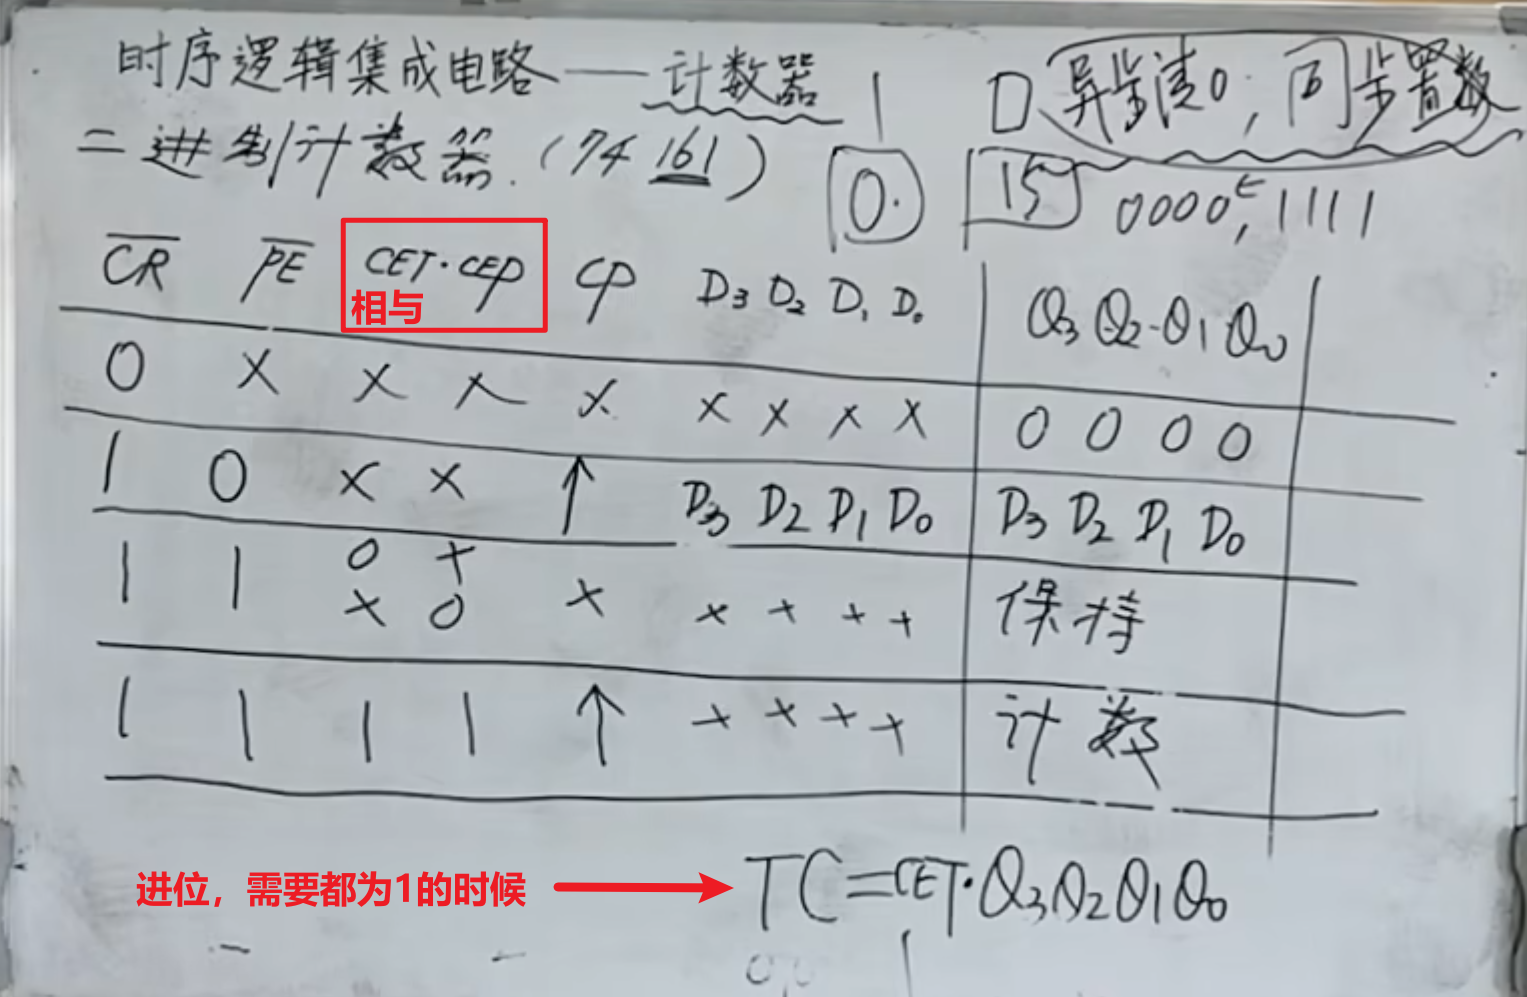 时序逻辑集成电路——计数器 1 D 异步清0; 同步置数
二进制计数器. (74 161) 0. 15 0000 1111
CR PE CET·CEP CP D₃ D₂ D₁ D₀ Q₃ Q₂ Q₁ Q₀
相与
0 × × × × × × × × 0 0 0 0
1 0 × × ↑ D₃ D₂ D₁ D₀ D₃ D₂ D₁ D₀
1 1 0 × × × × × × 保持
× 0
1 1 1 1 ↑ × × × × 计数
进位，需要都为1的时候 → TC=CET·Q₃Q₂Q₁Q₀